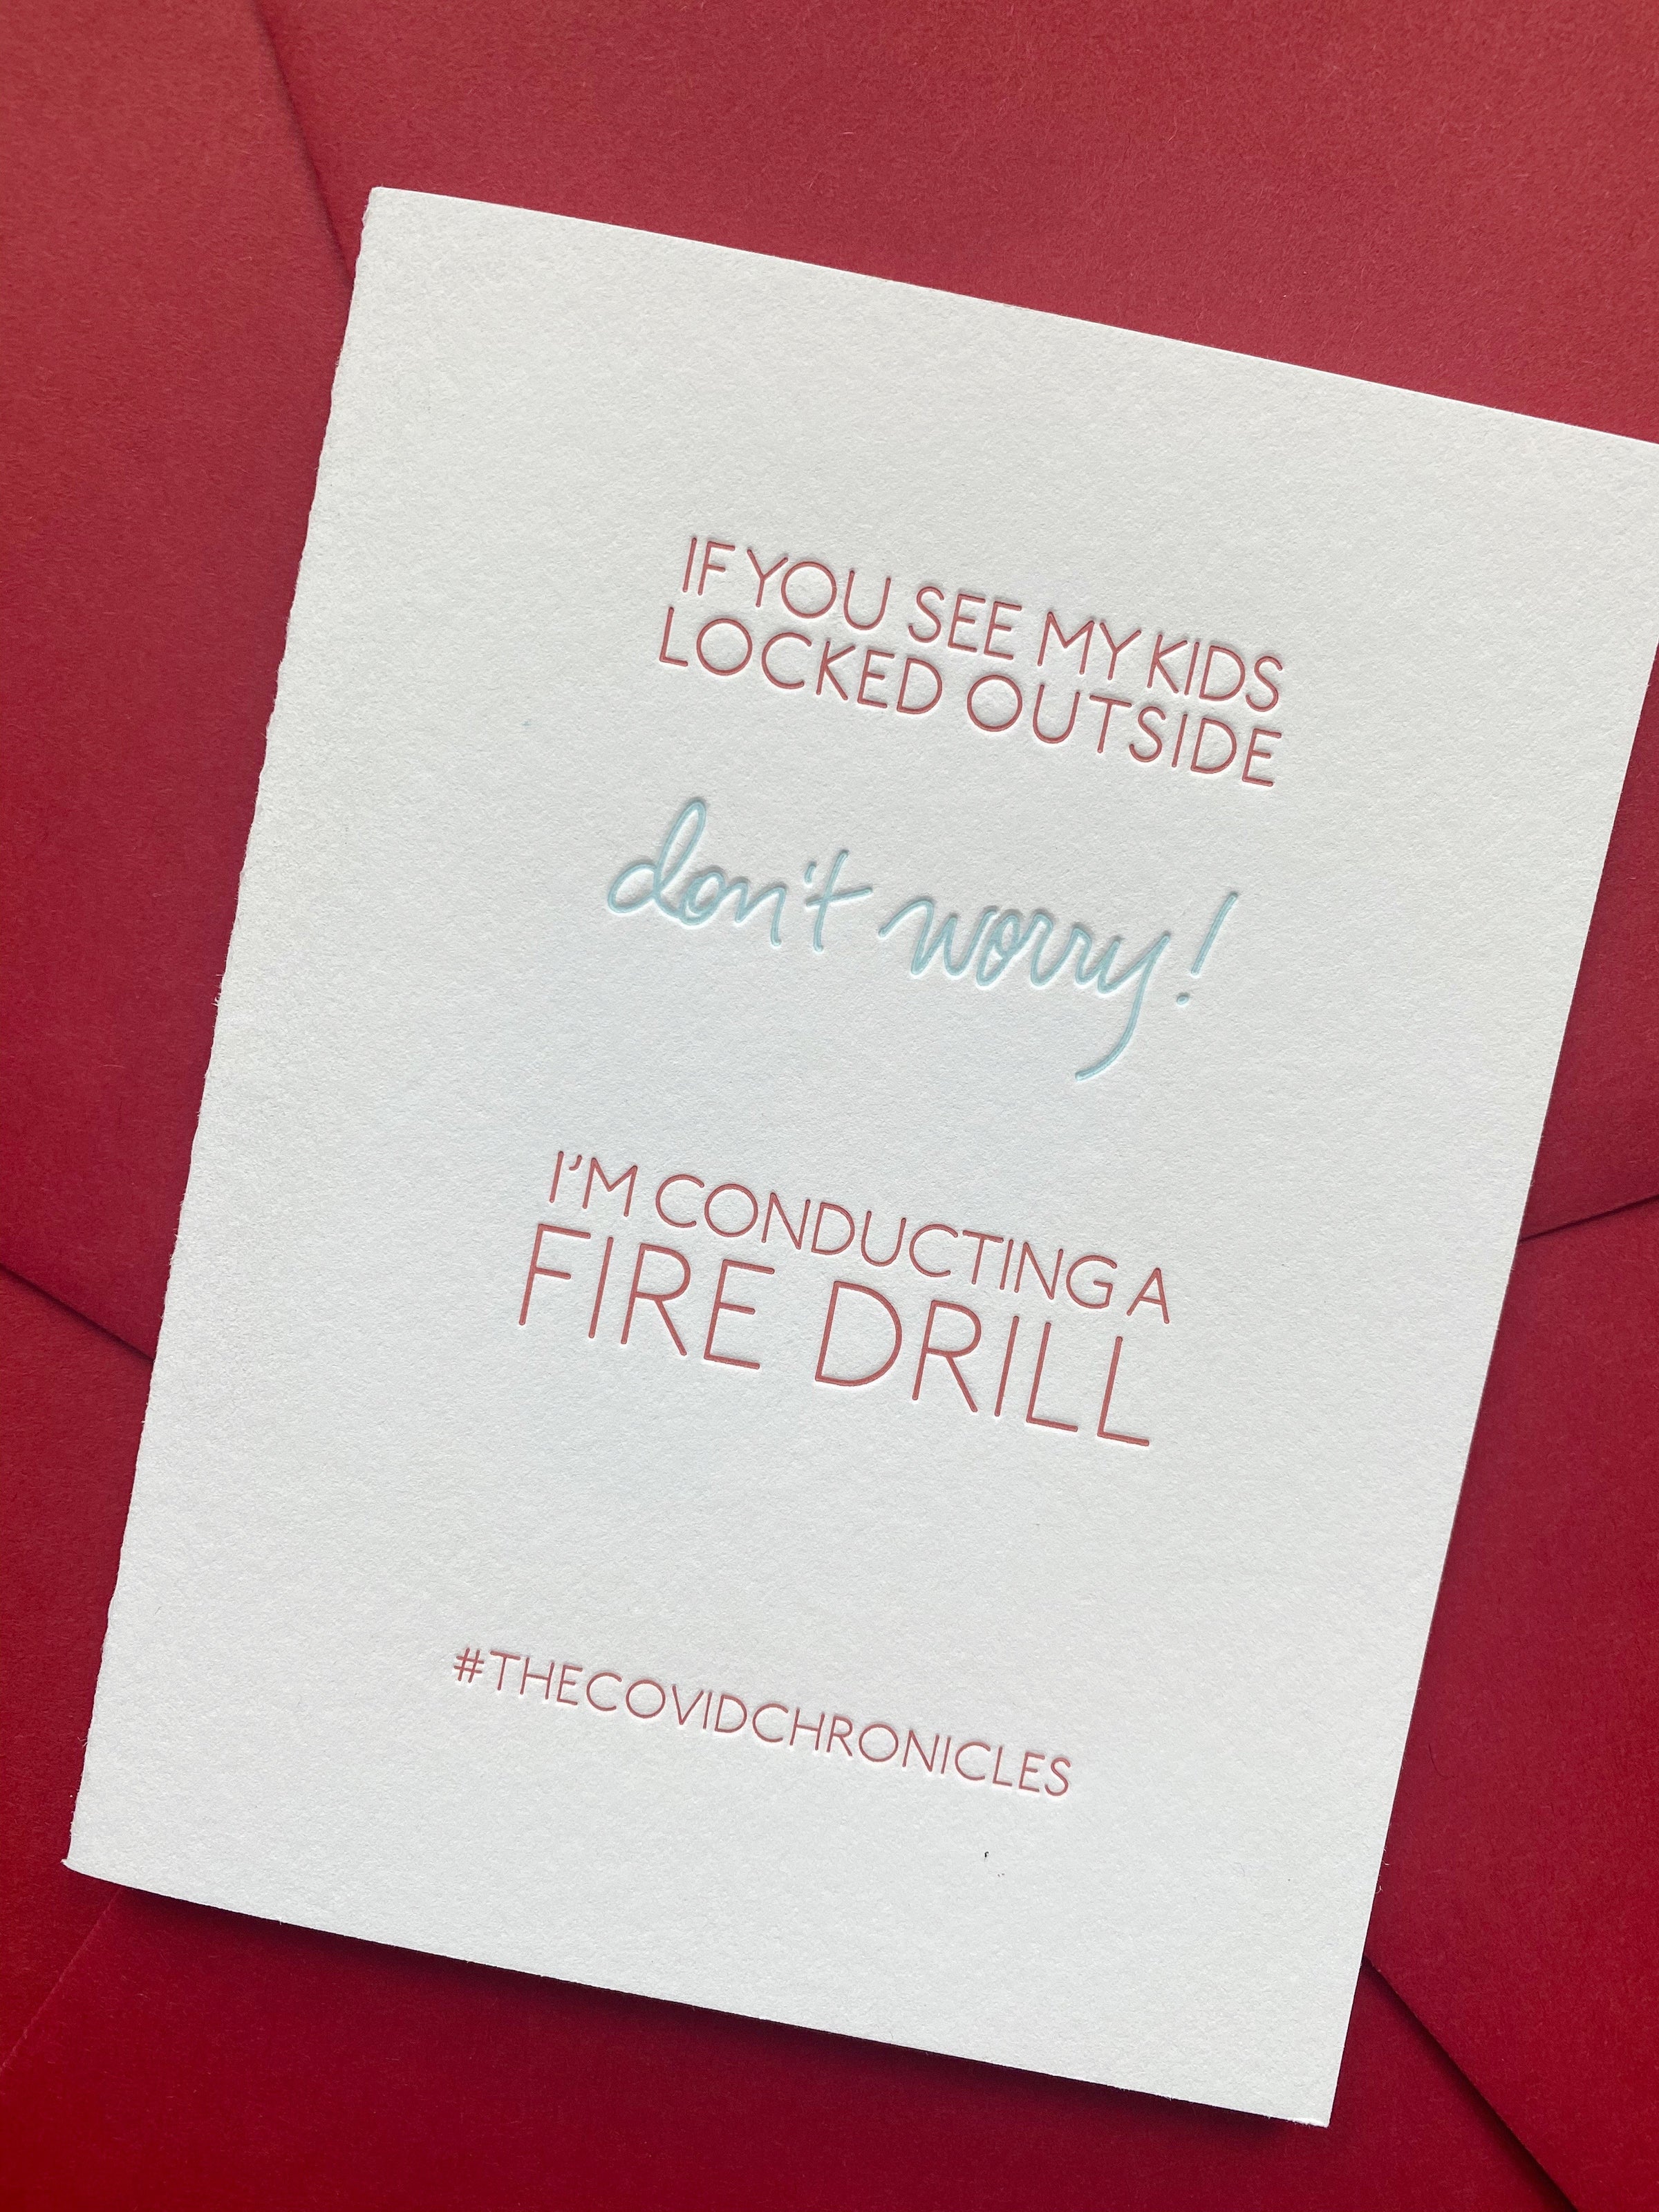 IF YOU SEE MY KIDS
LOCKED OUTSIDE
don't worry!
I'M CONDUCTING A
FIRE DRILL
#THECOVIDCHRONICLES